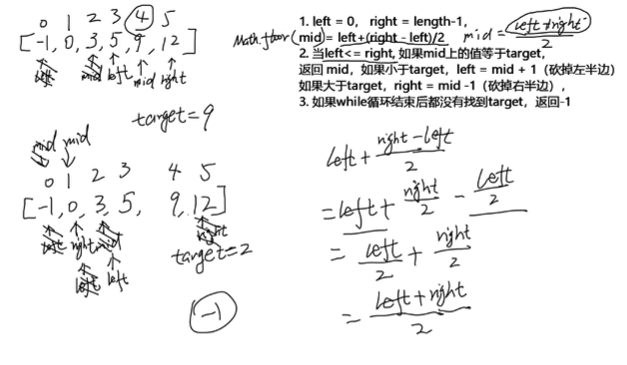 0 1 2 3 4 5
[-1, 0, 3, 5, 9, 12]
left mid left mid right
target=9
mid mid
0 1 2 3 4 5
[-1, 0, 3, 5, 9, 12]
left right mid right
left left
target=2
-1
1. left = 0, right = length-1,
Math.floor(mid)= left+(right - left)/2 mid = left+right / 2
2. 当left<= right, 如果mid上的值等于target,
返回 mid，如果小于target，left = mid + 1（砍掉左半边）
如果大于target，right = mid -1（砍掉右半边）,
3. 如果while循环结束后都没有找到target，返回-1
left + right - left / 2
= left + right / 2 - left / 2
= left / 2 + right / 2
= left + right / 2